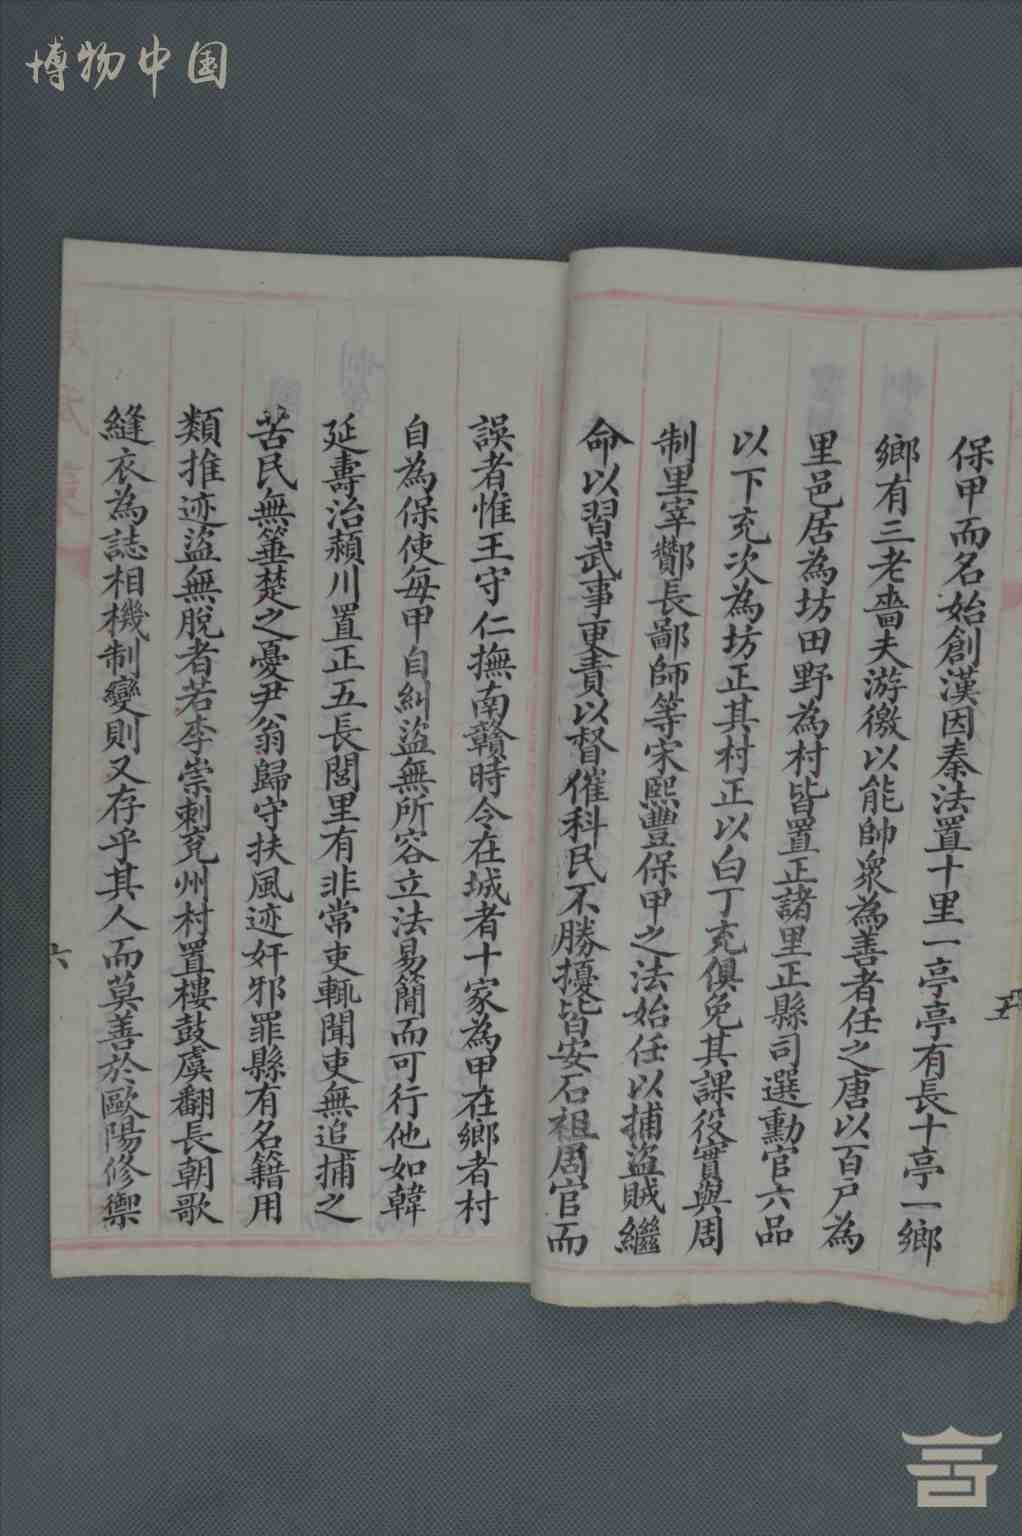 博物中国
保甲而名始創漢因秦法置十里一亭亭有長十亭一鄉
鄉有三老嗇夫游徼以能帥衆為善者任之唐以百户為
里邑居為坊田野為村皆置正諸里正縣司選勳官六品
以下充次為坊正其村正以白丁充俱免其課役實與周
制里宰酇長鄙師等宋熙豐保甲之法始任以捕盜賊繼
命以習武事更責以督催科民不勝擾皆安石祖周官而
誤者惟王守仁撫南贛時令在城者十家為甲在鄉者村
自為保使每甲自糾盜無所容立法易簡而可行他如韓
延壽治潁川置正五長閭里有非常吏輒聞吏無追捕之
苦民無箠楚之憂尹翁歸守扶風迹奸邪罪縣有名籍用
類推迹盜無脫者若李崇刺兗州村置樓鼓虞翻長朝歌
縫衣為誌相機制變則又存乎其人而莫善於歐陽修禦
五
六